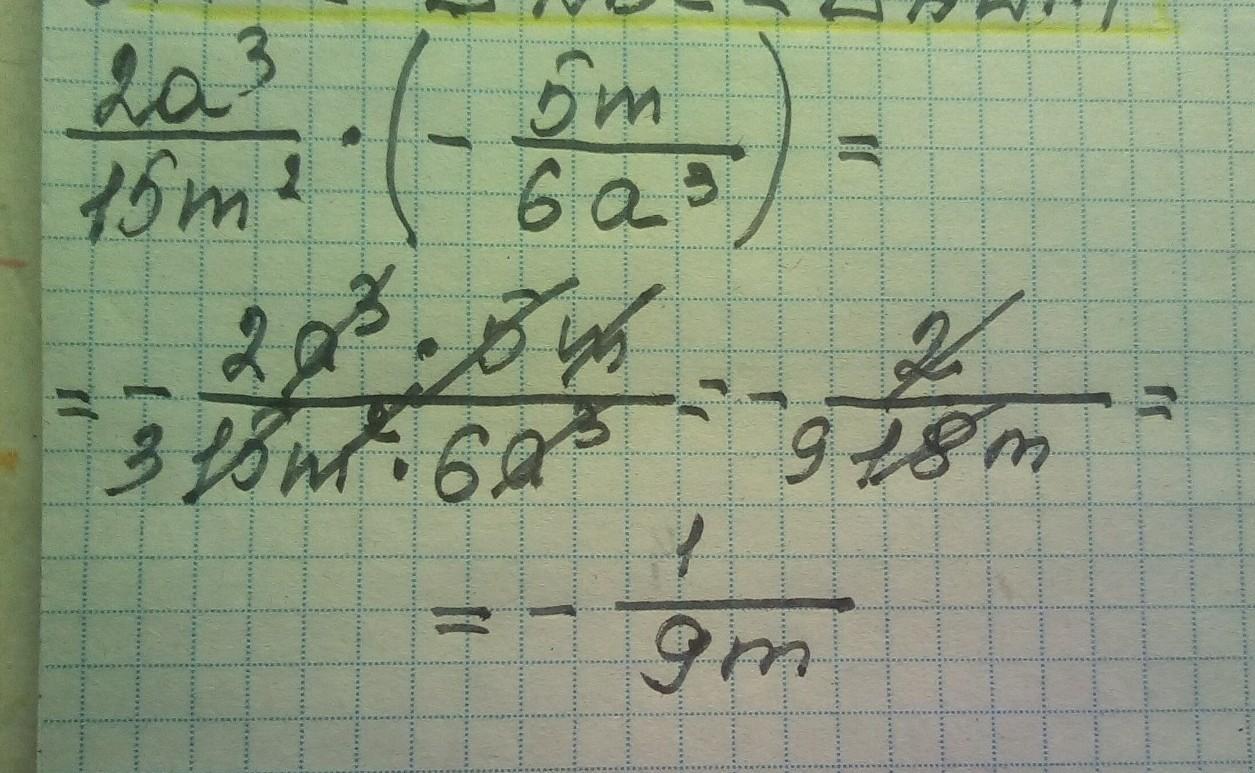 2a³/15m² · (- 5m/6a³) =
= - 2a³ · 5m / 3 15m² · 6a³ = - 2 / 9 18m =
= - 1/9m